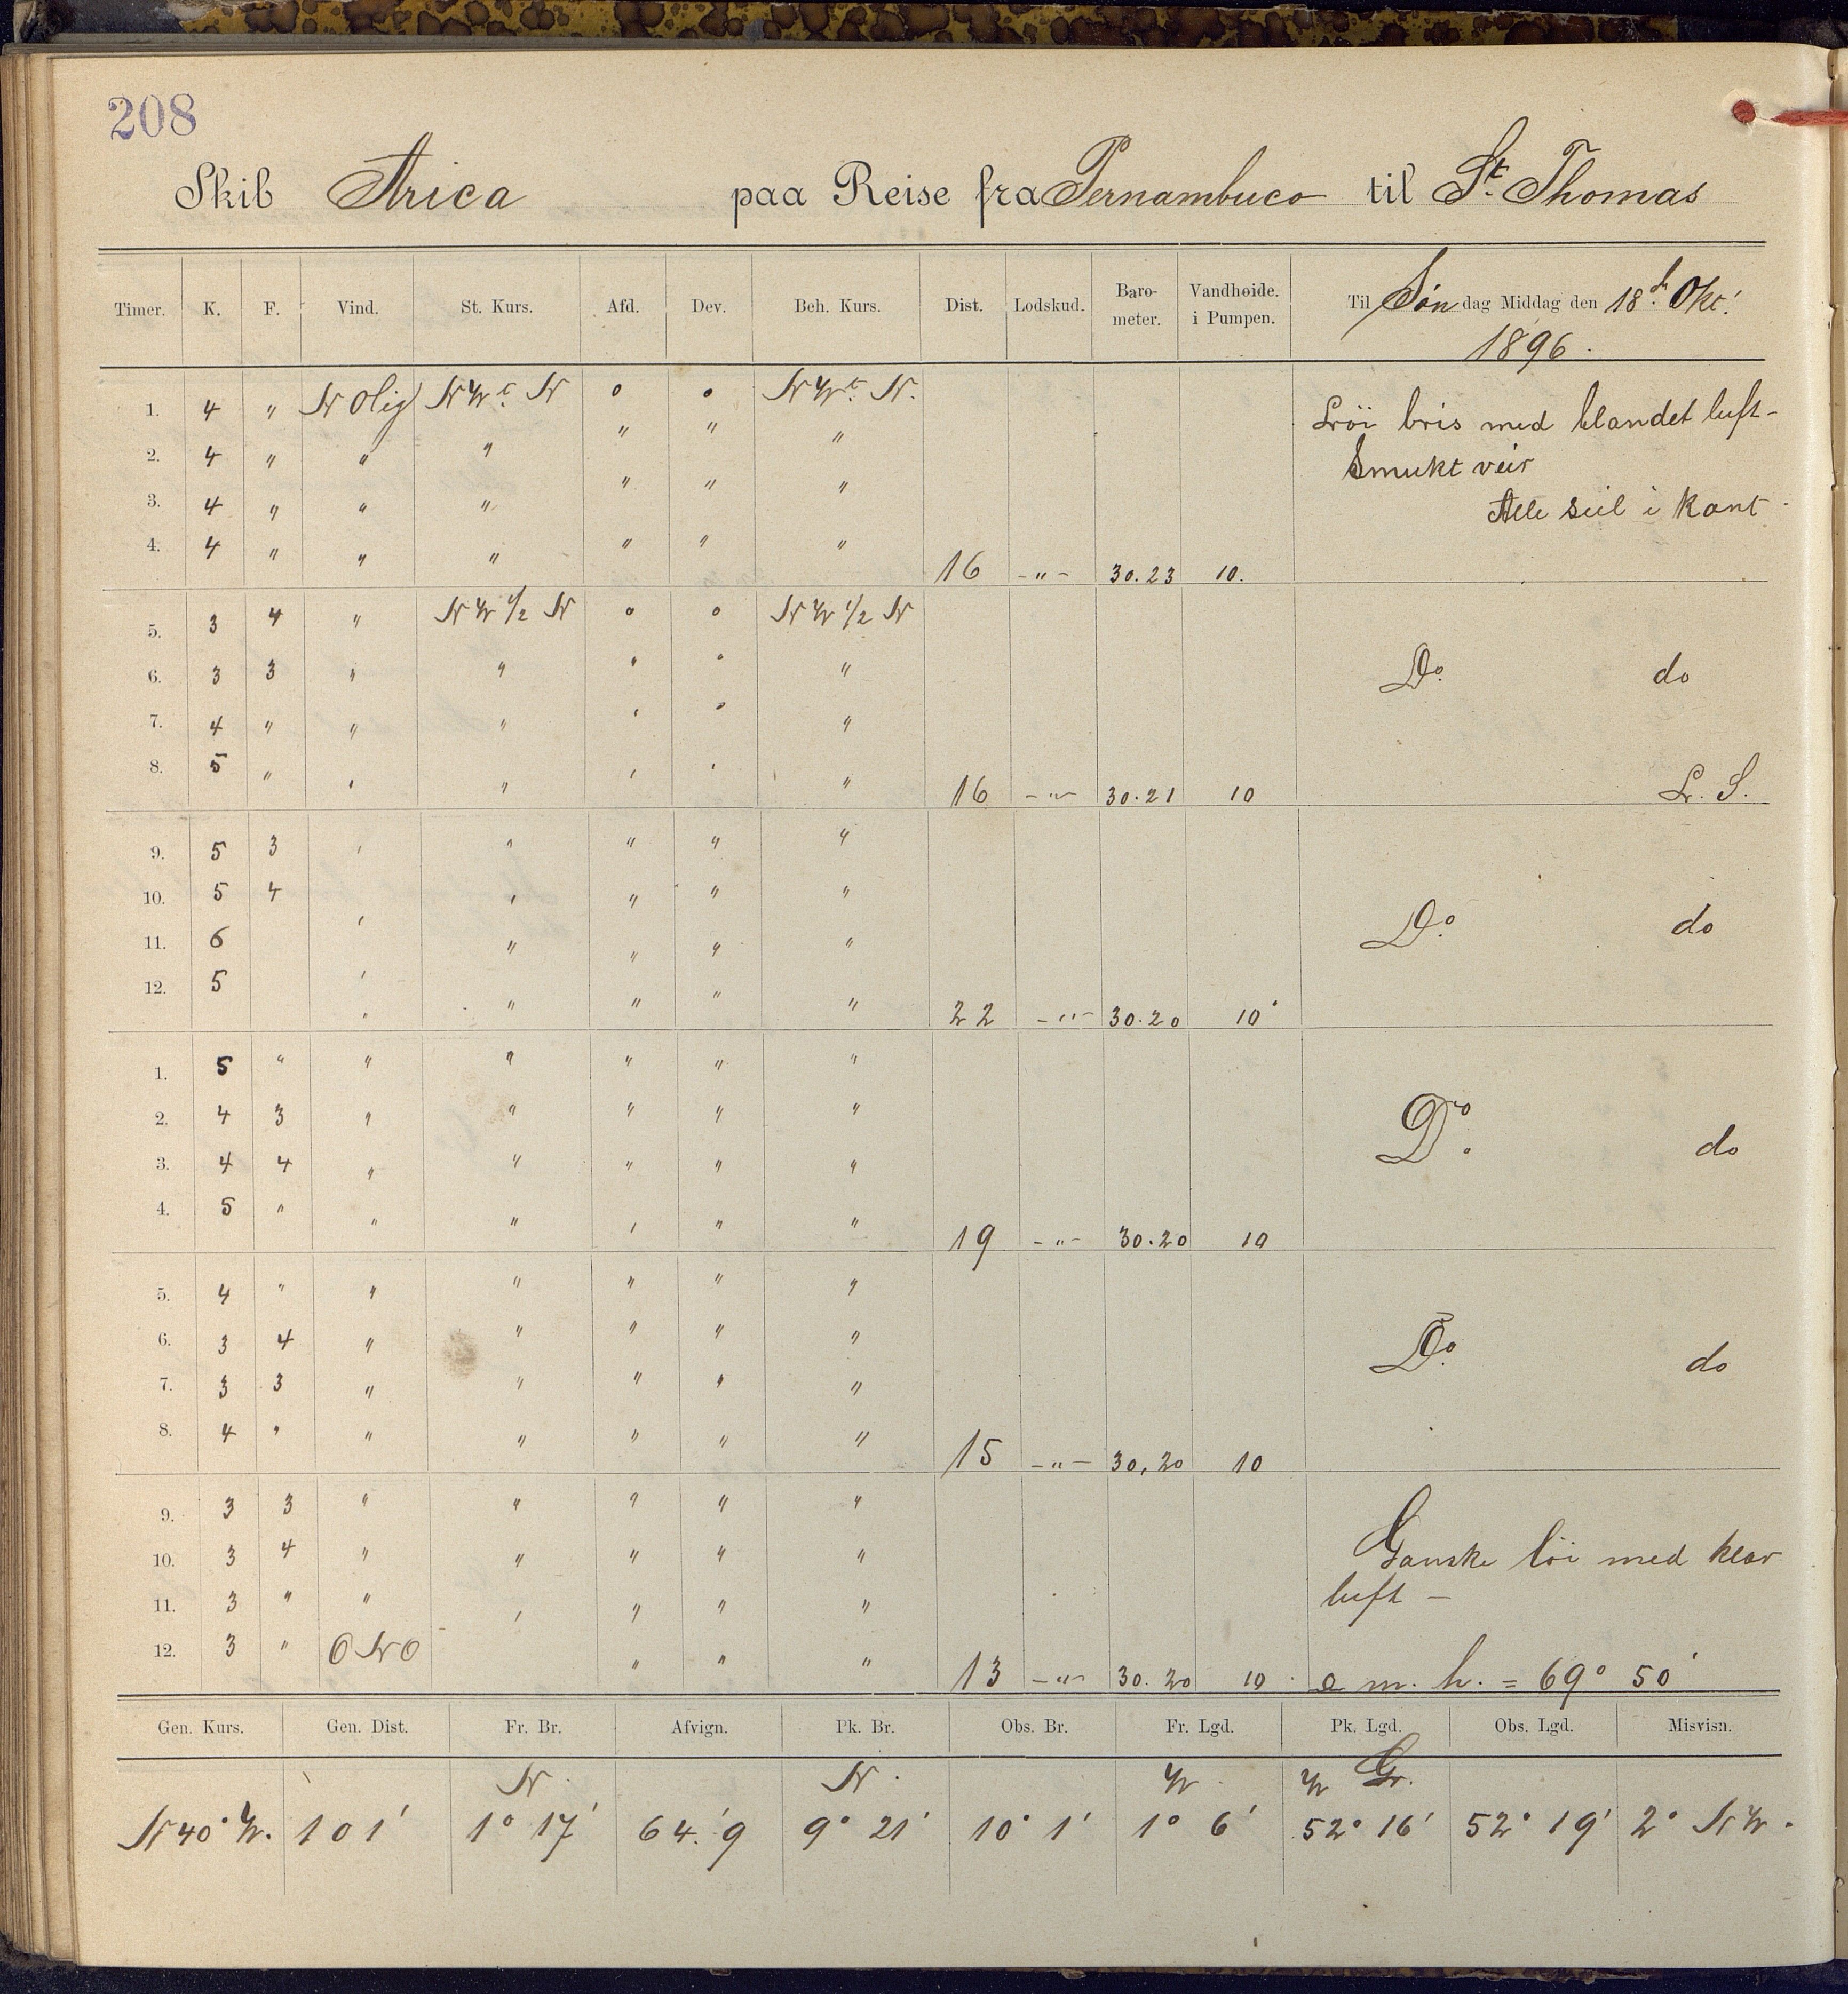 208
Skib Arica paa Reise fra Pernambuco til St. Thomas
Timer. K. F. Vind. St. Kurs. Afd. Dev. Beh. Kurs. Dist. Lodskud. Baro-meter. Vandhøide. i Pumpen. Til Søndag Middag den 18d. Okt.
1896.
1. 4 " NOlig NWt. N 0 0 NWt. N. Fröi bris med blandet luft -
2. 4 " " " " " " Smukt veir
3. 4 " " " " " " Alle seil i kant -
4. 4 " " " " " " 16 -"- 30.23 10.
5. 3 4 " NW 1/2 N 0 0 NW 1/2 N
6. 3 3 " " " " " Do. do
7. 4 " " " " " "
8. 5 " " " " " " 16 -"- 30.21 10 Fr. S.
9. 5 3 " " " " "
10. 5 4 " " " " "
11. 6 " " " " " Do. do
12. 5 " " " " " 22 -"- 30.20 10
1. 5 " " " " " "
2. 4 3 " " " " " Do. do
3. 4 4 " " " " "
4. 5 " " " " " " 19 -"- 30.20 10
5. 4 " " " " " "
6. 3 4 " " " " " Do. do
7. 3 3 " " " " "
8. 4 " " " " " " 15 -"- 30,20 10
9. 3 3 " " " " "
10. 3 4 " " " " " Ganske löi med klar
11. 3 " " " " " " luft -
12. 3 " ONO " " " 13 -"- 30.20 10 a m. h. = 69° 50'
Gen. Kurs. Gen. Dist. Fr. Br. Afvign. Pk. Br. Obs. Br. Fr. Lgd. Pk. Lgd. Obs. Lgd. Misvisn.
N. N. W W Gr.
N 40° W. 101' 1° 17' 64.'9 9° 21' 10° 1' 1° 6' 52° 16' 52° 19' 2° NW.